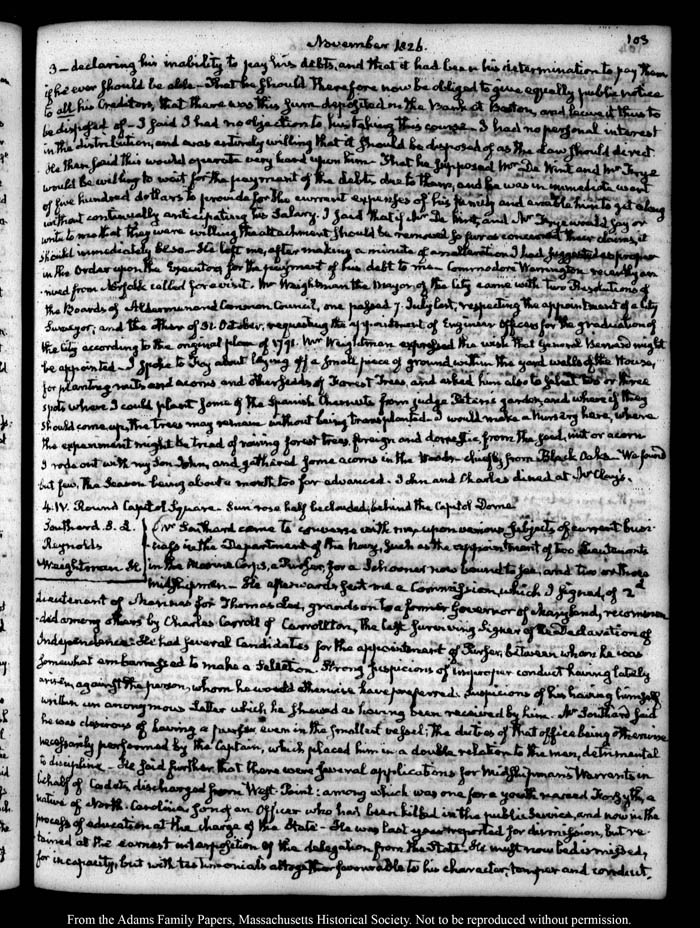 November 1826.
103
3 — declaring his inability to pay his debts, and that it had been his determination to pay them
if he ever should be able — That he should therefore now be obliged to give equally public notice
to all his Creditors, that there was this sum deposited in the Bank at Boston, and leave it thus to
be disposed of — I said I had no objection to his taking this course — I had no personal interest
in the distribution, and was entirely willing that it should be disposed of as the Law should direct.
He then said this would operate very hard upon him — That he supposed Mr De Wint and Mr Frye
would be willing to wait for the payment of the debts due to them, and he was in immediate want
of five hundred dollars to provide for the current expenses of his family and enable him to get along
without continually anticipating his Salary. I said that if Mr De Wint, and Mr Frye would say or
write to me that they were willing the attachment should be removed so far as concerned their claims, it
should immediately be so — He left me, after making a minute of an alteration I had suggested as proper
in the Order upon the Executors for the payment of his debt to me — Commodore Warrington recently ar
rived from Norfolk called for a visit. Mr Weightman the Mayor of the City came with two Resolutions of
the Boards of Aldermen and Common Council, one passed 7. July last, respecting the appointment of a City
Surveyor; and the other of 31. October, requesting the appointment of Engineer Officers for the graduation of
the City according to the original plan of 1791. Mr Weightman expressed the wish that General Bernard might
be appointed — I spoke to Foy about laying off a small piece of ground within the yard walls of the House,
for planting nuts and acorns and other seeds of Forest Trees, and asked him also to select two or three
spots where I could plant some of the Spanish Chesnuts from judge Peters's garden, and where if they
should come up, the trees may remain without being transplanted. I would make a Nursery here, where
the experiment might be tried of raising forest trees, foreign and domestic, from the seed, nut or acorn
I rode out with my Son John, and gathered some acorns in the Woods chiefly from Black Oaks — We found
but few, the Season being about a month too far advanced. John and Charles dined at Mr Clay's.
4. IV. Round Capitol Square. Sun rose half beclouded, behind the Capitol Dome.
Southard. S. L.
Reynolds
Weightman
Mr Southard came to converse with me, upon various subjects of current busi-
ness in the Department of the Navy, such as the appointment of two Lieutenants
in the Marine Corps, a Purser, for a Schooner now bound to sea, and two or three
Midshipmen — He afterwards sent me a Commission, which I signed, of 2d
Lieutenant of Marines for Thomas Lee, grandson to a former Governor of Maryland, recommen
-ded among others by Charles Carroll of Carrollton, the last surviving Signer of the Declaration of
Independence. He had several Candidates for the appointment of Purser, between whom he was
somewhat embarrassed to make a selection. Strong suspicions of improper conduct having lately
arisen, against the person, whom he would otherwise have preferred. Suspicions of his having himself
written an anonymous Letter which he shewed as having been received by him. Mr Southard said
he was desirous of having a purser even in the smallest vessel; the duties of that office being otherwise
necessarily performed by the Captain, which placed him in a double relation to the men, detrimental
to discipline — He said further that there were several applications for Midshipman's Warrants, in
behalf of Cadets, discharged from West Point: among which was one for a youth named Forsyth, a
native of North-Carolina, son of an Officer who had been killed in the public service, and now in the
process of education at the charge of the State — He was last year reported for dismission, but re-
tained at the earnest interposition of the delegation from the State. He must now be dismissed,
for incapacity, but with testimonials altogether favourable to his character, temper and conduct.
From the Adams Family Papers, Massachusetts Historical Society. Not to be reproduced without permission.